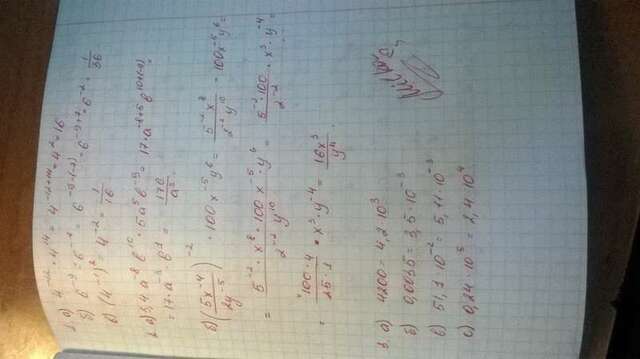 1. а) 4⁻¹² · 4¹⁴ = 4⁻¹²⁺¹⁴ = 4² = 16
б) 6⁻⁹ : 6⁻⁷ = 6⁻⁹⁻⁽⁻⁷⁾ = 6⁻⁹⁺⁷ = 6⁻² = 1/36
в) (4⁻¹)² = 4⁻² = 1/16
2. а) 3,4 a⁻⁸ b¹⁰ · 5a⁵ b⁻⁹ = 17 · a⁻⁸⁺⁵ b¹⁰⁺⁽⁻⁹⁾
= 17 · a⁻³ · b¹ = 17b/a³
б) (5x⁻⁴/2y⁻⁵)⁻² · 100x⁻⁵y⁶ = 5⁻²x⁸/2⁻²y¹⁰ · 100x⁻⁵y⁶ =
= 5⁻² · x⁸ · 100x⁻⁵ · y⁶/2⁻² y¹⁰ = 5⁻² · 100/2⁻² · x³ · y⁻⁴ =
= 100 · 4/25 · 1 · x³ · y⁻⁴ = 16x³/y⁴
3. а) 4200 = 4,2 · 10³
б) 0,0035 = 3,5 · 10⁻³